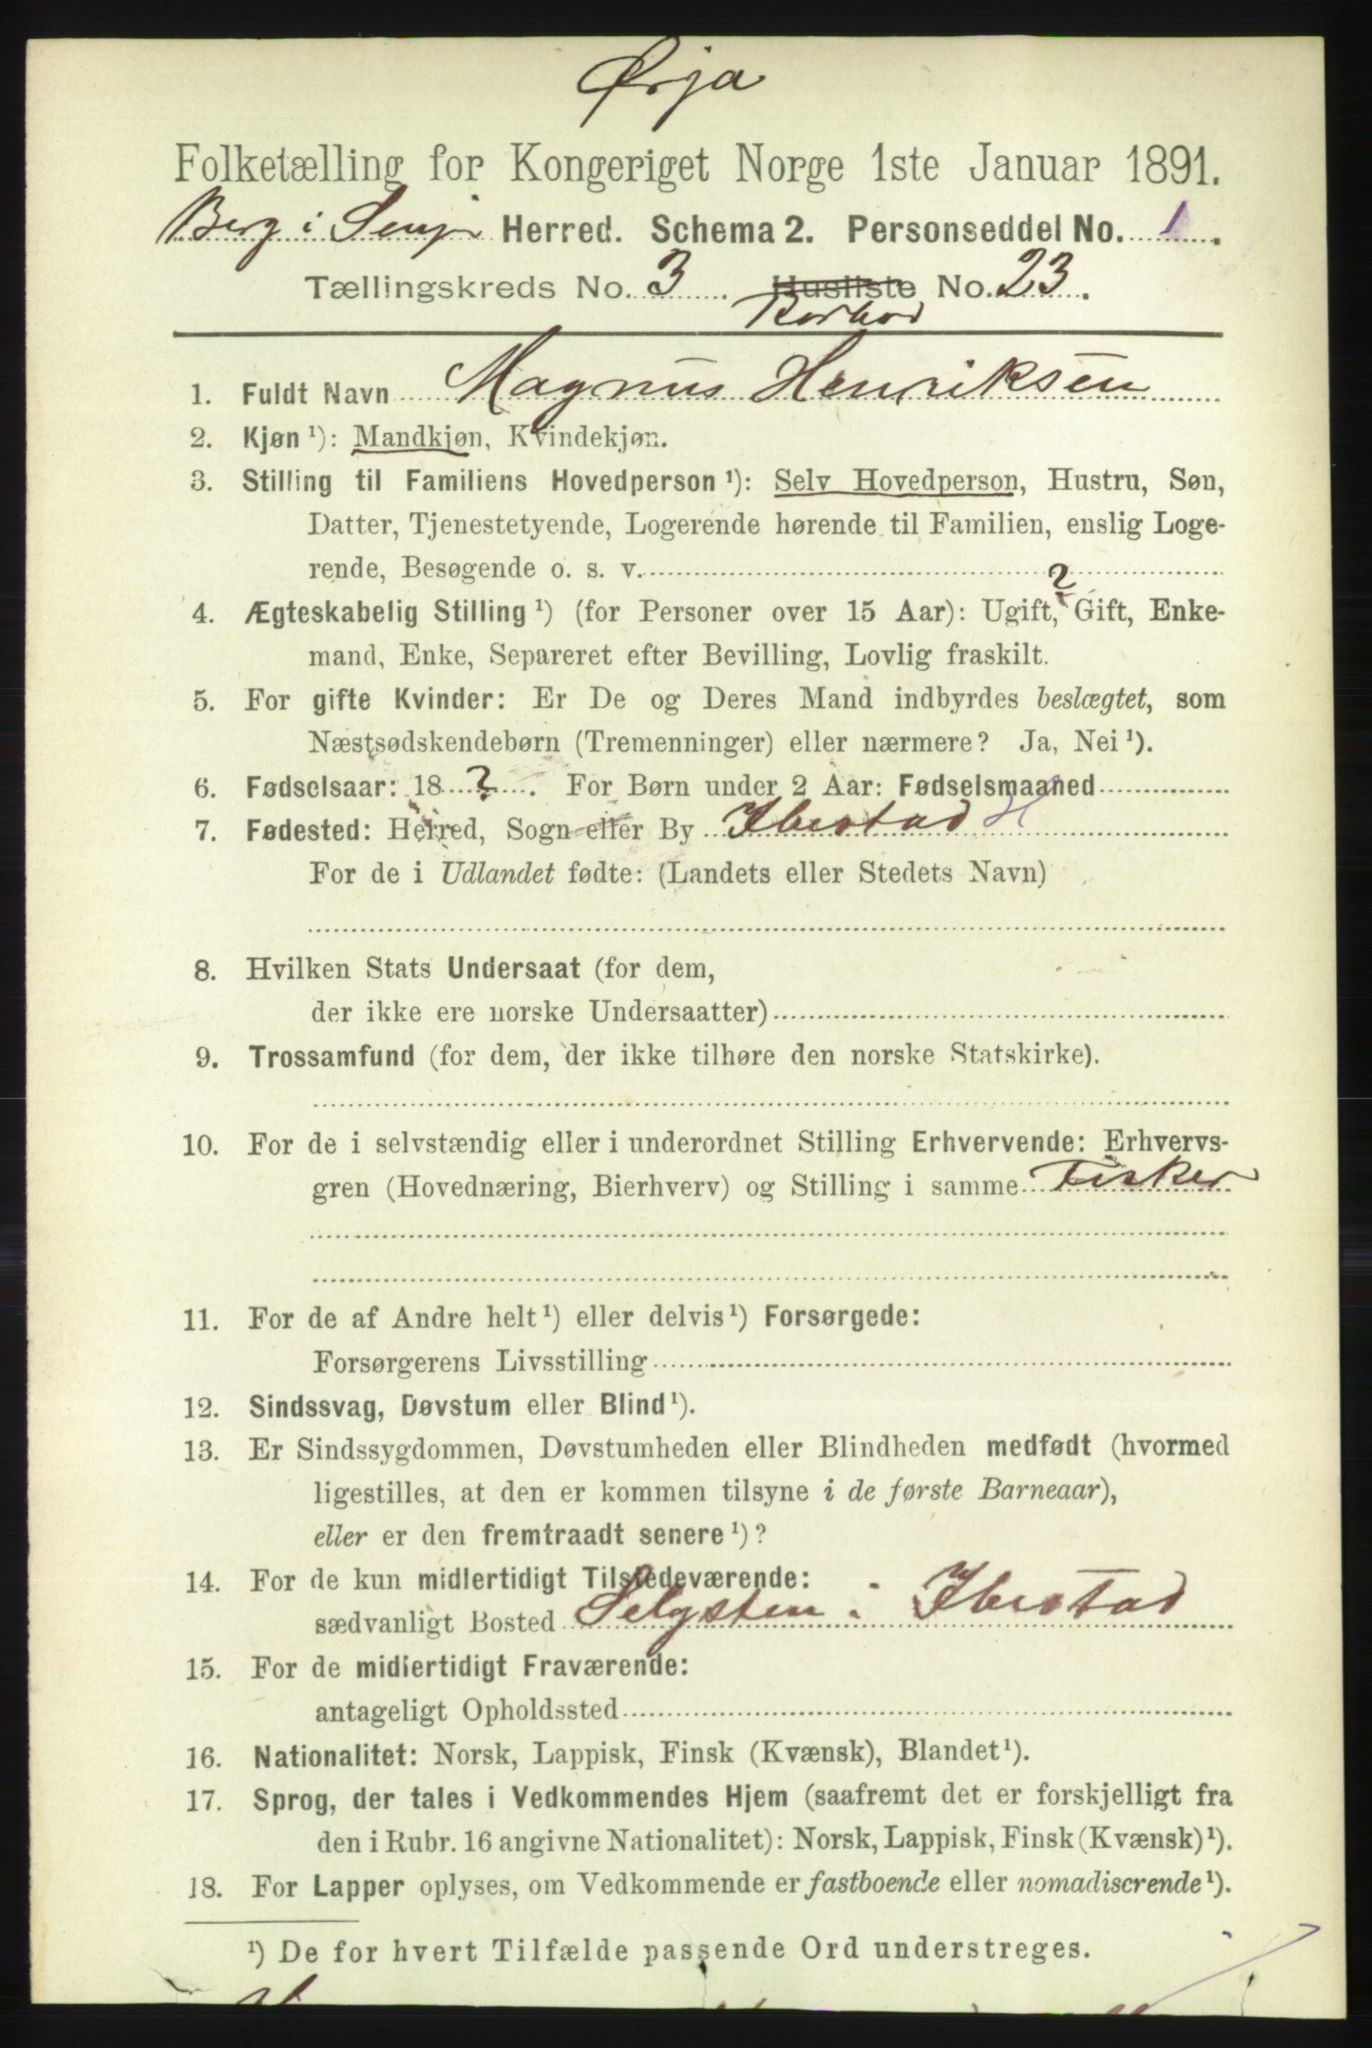 Ørja
Folketælling for Kongeriget Norge 1ste Januar 1891.
Berg i Senjen Herred. Schema 2. Personseddel No. 1.
Tællingskreds No. 3. Husliste No. 23.
Rorbod
1. Fuldt Navn Magnus Henriksen
2. Kjøn ¹): Mandkjøn, Kvindekjøn.
3. Stilling til Familiens Hovedperson ¹): Selv Hovedperson, Hustru, Søn,
Datter, Tjenestetyende, Logerende hørende til Familien, enslig Loge-
rende, Besøgende o. s. v.
?
4. Ægteskabelig Stilling ¹) (for Personer over 15 Aar): Ugift, Gift, Enke-
mand, Enke, Separeret efter Bevilling, Lovlig fraskilt.
5. For gifte Kvinder: Er De og Deres Mand indbyrdes beslægtet, som
Næstsødskendebørn (Tremenninger) eller nærmere? Ja, Nei ¹).
6. Fødselsaar: 18 ?. For Børn under 2 Aar: Fødselsmaaned
7. Fødested: Herred, Sogn eller By Ibestad H
For de i Udlandet fødte: (Landets eller Stedets Navn)
8. Hvilken Stats Undersaat (for dem,
der ikke ere norske Undersaatter)
9. Trossamfund (for dem, der ikke tilhøre den norske Statskirke).
10. For de i selvstændig eller i underordnet Stilling Erhvervende: Erhvervs-
gren (Hovednæring, Bierhverv) og Stilling i samme Fisker
11. For de af Andre helt ¹) eller delvis ¹) Forsørgede:
Forsørgerens Livsstilling
12. Sindssvag, Døvstum eller Blind ¹).
13. Er Sindssygdommen, Døvstumheden eller Blindheden medfødt (hvormed
ligestilles, at den er kommen tilsyne i de første Barneaar),
eller er den fremtraadt senere ¹)?
14. For de kun midlertidigt Tilstedeværende:
sædvanligt Bosted Selgsten i Ibestad
15. For de midlertidigt Fraværende:
antageligt Opholdssted
16. Nationalitet: Norsk, Lappisk, Finsk (Kvænsk), Blandet ¹).
17. Sprog, der tales i Vedkommendes Hjem (saafremt det er forskjelligt fra
den i Rubr. 16 angivne Nationalitet): Norsk, Lappisk, Finsk (Kvænsk) ¹).
18. For Lapper oplyses, om Vedkommende er fastboende eller nomadiserende ¹).
¹) De for hvert Tilfælde passende Ord understreges.